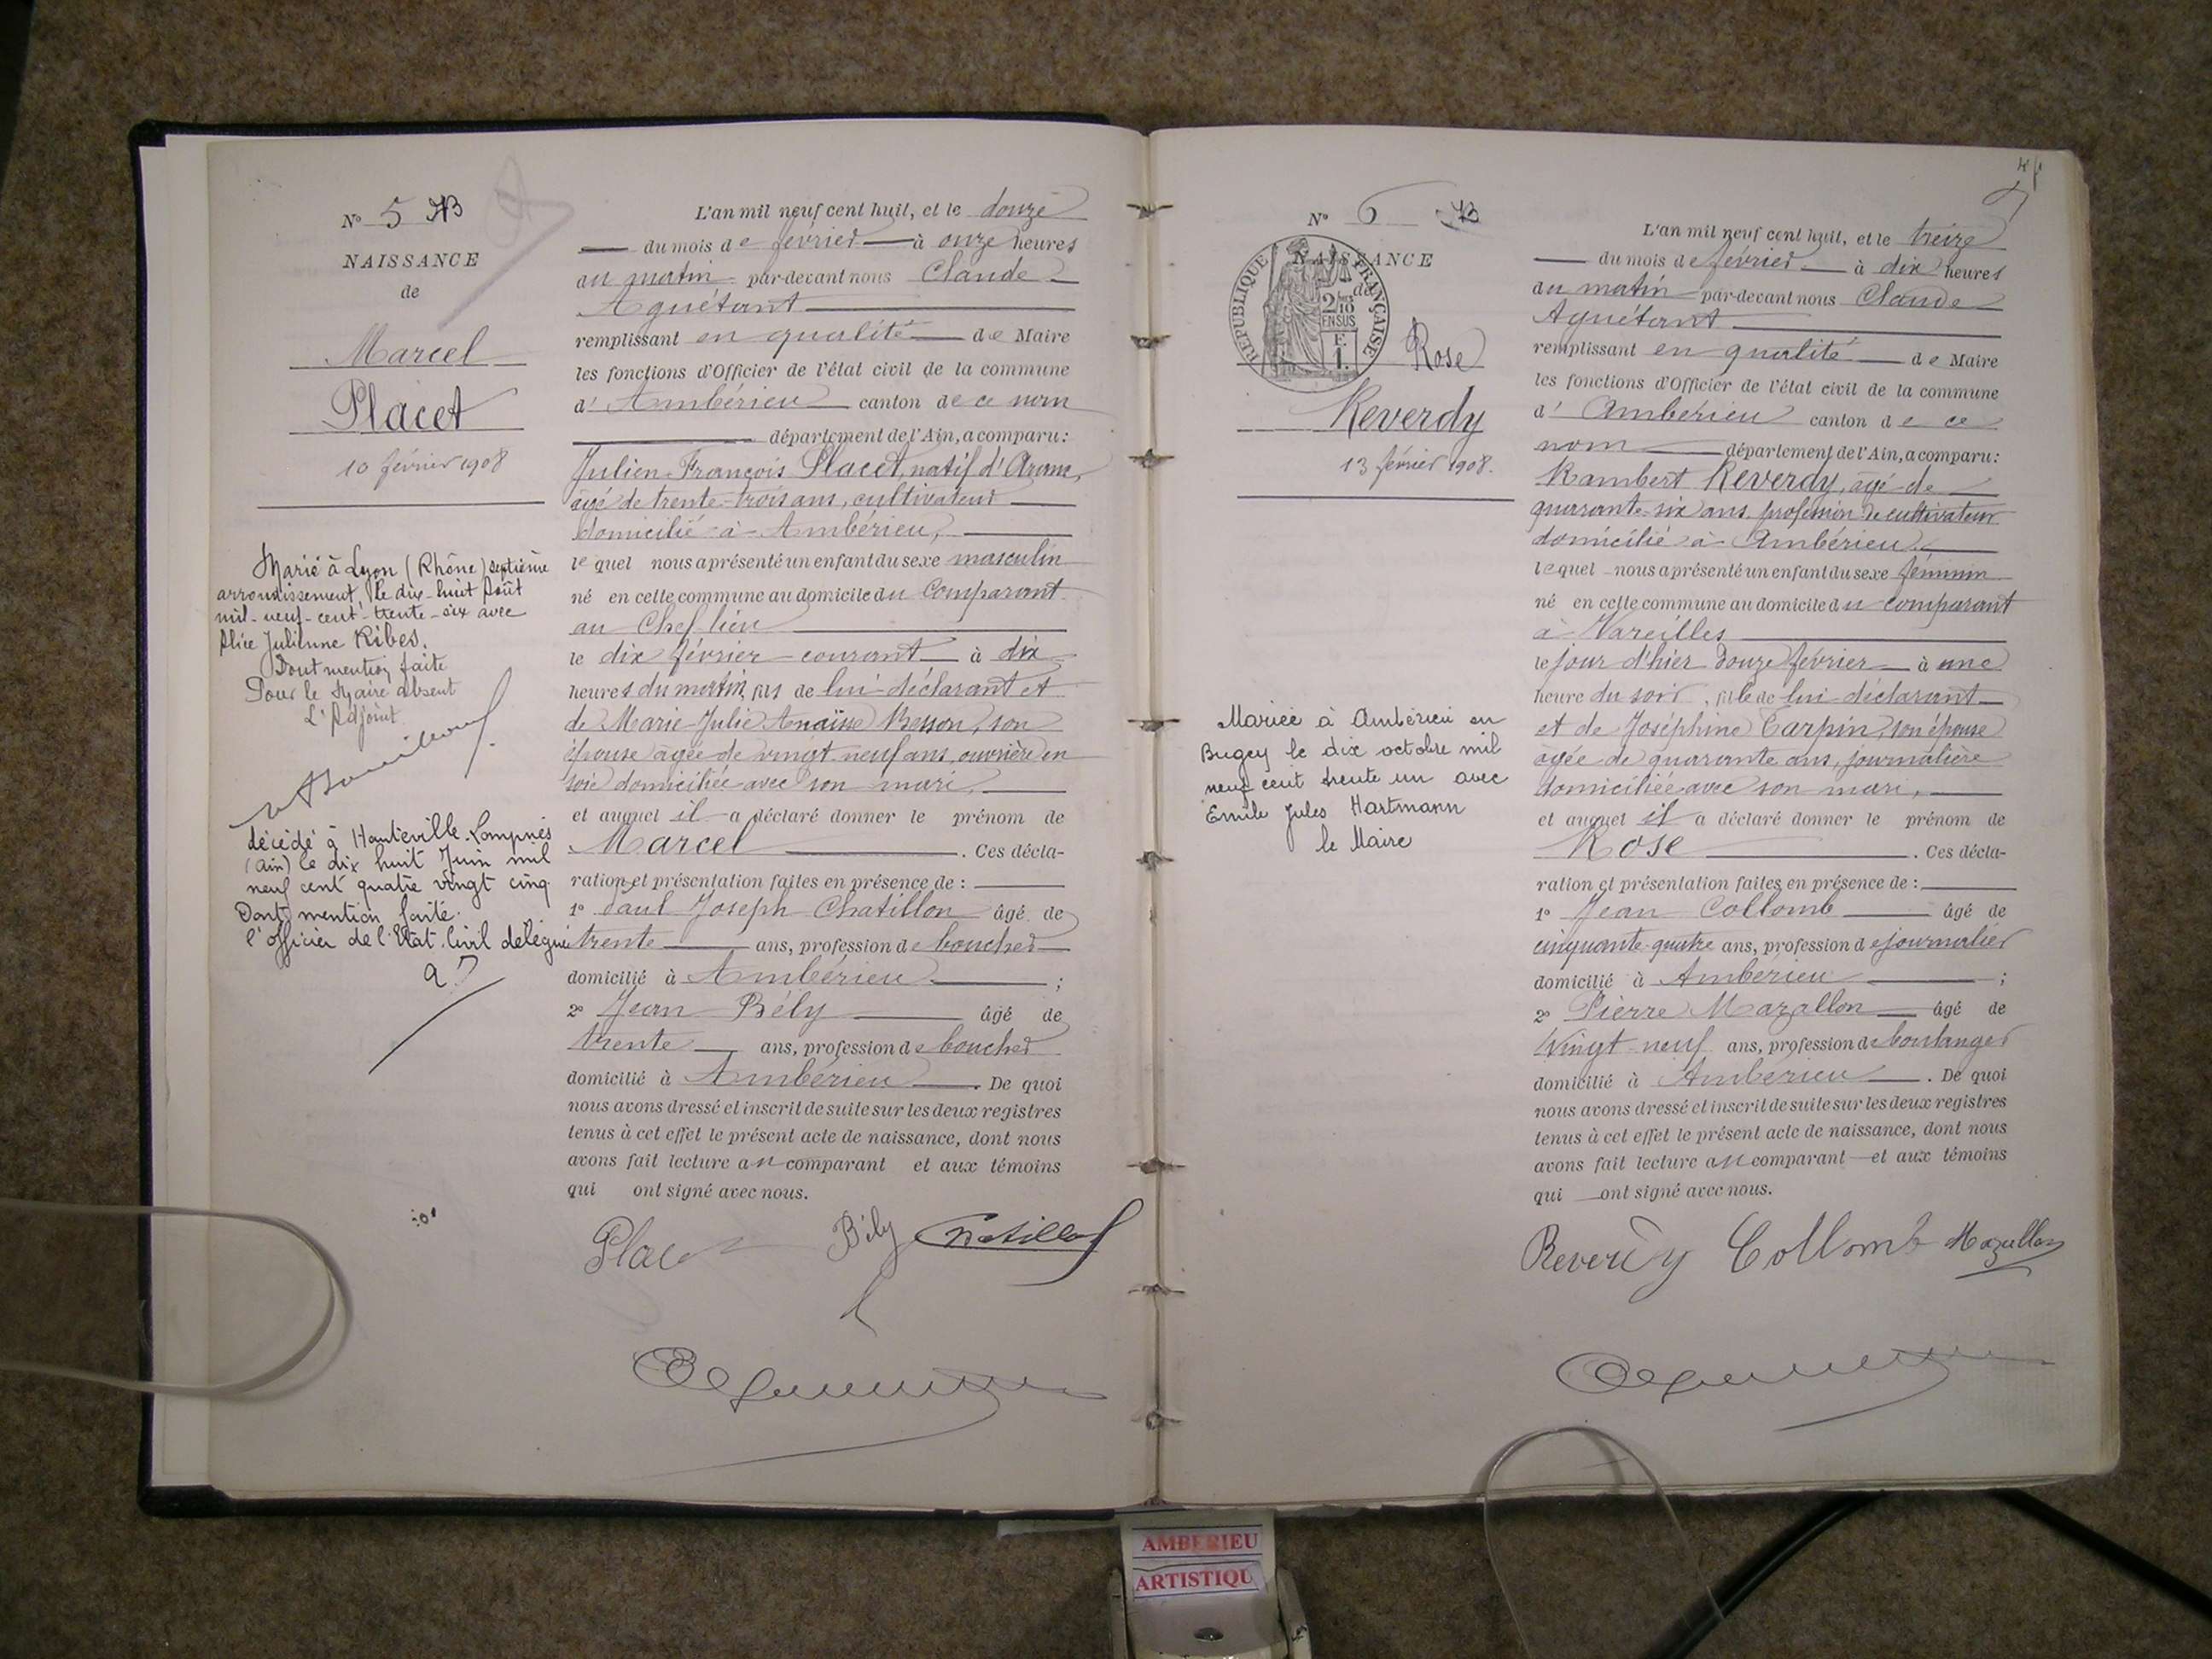 N° 5
NAISSANCE
de
Marcel
Placet
10 février 1908
Marié à Lyon (Rhône) septième
arrondissement, le dix-huit Août
mil-neuf-cent-trente-six avec
Alice Julienne Ribes.
Dont mention faite
Pour le Maire absent
L'Adjoint
décédé à Hauteville-Lompnes
(Ain) le dix huit Juin mil
neuf cent quatre vingt cinq
Dont mention faite.
l'officier de l'Etat Civil délégué
L'an mil neuf cent huit, et le douze
du mois de février à onze heures
du matin par-devant nous Claude
Aguétant
remplissant en qualité de Maire
les fonctions d'Officier de l'état civil de la commune
d' Ambérieu canton de ce nom
département de l'Ain, a comparu:
Julien-François Placet, natif d'Aranc,
âgé de trente-trois ans, cultivateur
domicilié à Ambérieu,
lequel nous a présenté un enfant du sexe masculin
né en cette commune au domicile du Comparant
au Chef lieu
le dix février courant à dix
heures du matin, fils de lui déclarant et
de Marie-Julie Anaïsse Besson, son
épouse âgée de vingt neuf ans, ouvrière en
soie domiciliée avec son mari,
et auquel il a déclaré donner le prénom de
Marcel. Ces décla-
ration et présentation faites en présence de :
1° Paul Joseph Chatillon âgé de
trente ans, profession de boucher
domicilié à Ambérieu ;
2° Jean Bély âgé de
trente ans, profession de boucher
domicilié à Ambérieu. De quoi
nous avons dressé et inscrit de suite sur les deux registres
tenus à cet effet le présent acte de naissance, dont nous
avons fait lecture au comparant et aux témoins
qui ont signé avec nous.
Placet Bély Chatillon
N° 6
NAISSANCE
de
RÉPUBLIQUE FRANÇAISE
2/10
EN SUS
Rose
Reverdy
13 février 1908.
Mariée à Ambérieu en
Bugey le dix octobre mil
neuf cent trente un avec
Emile Jules Hartmann
le Maire
L'an mil neuf cent huit, et le treize
du mois de février à dix heures
du matin par-devant nous Claude
Aguétant
remplissant en qualité de Maire
les fonctions d'Officier de l'état civil de la commune
d' Ambérieu canton de ce
nom département de l'Ain, a comparu:
Rambert Reverdy, âgé de
quarante-six ans, profession de cultivateur
domicilié à Ambérieu,
lequel nous a présenté un enfant du sexe féminin
né en cette commune au domicile du comparant
à Vareilles
le jour d'hier douze février à une
heure du soir, fille de lui déclarant
et de Joséphine Carpin, son épouse
âgée de quarante ans, journalière
domiciliée avec son mari,
et auquel il a déclaré donner le prénom de
Rose. Ces décla-
ration et présentation faites en présence de :
1° Jean Collomb âgé de
cinquante-quatre ans, profession de journalier
domicilié à Ambérieu ;
2° Pierre Mazallon âgé de
Vingt-neuf ans, profession de boulanger
domicilié à Ambérieu. De quoi
nous avons dressé et inscrit de suite sur les deux registres
tenus à cet effet le présent acte de naissance, dont nous
avons fait lecture au comparant et aux témoins
qui ont signé avec nous.
Reverdy Collomb Mazallon
AMBERIEU
ARTISTIQU